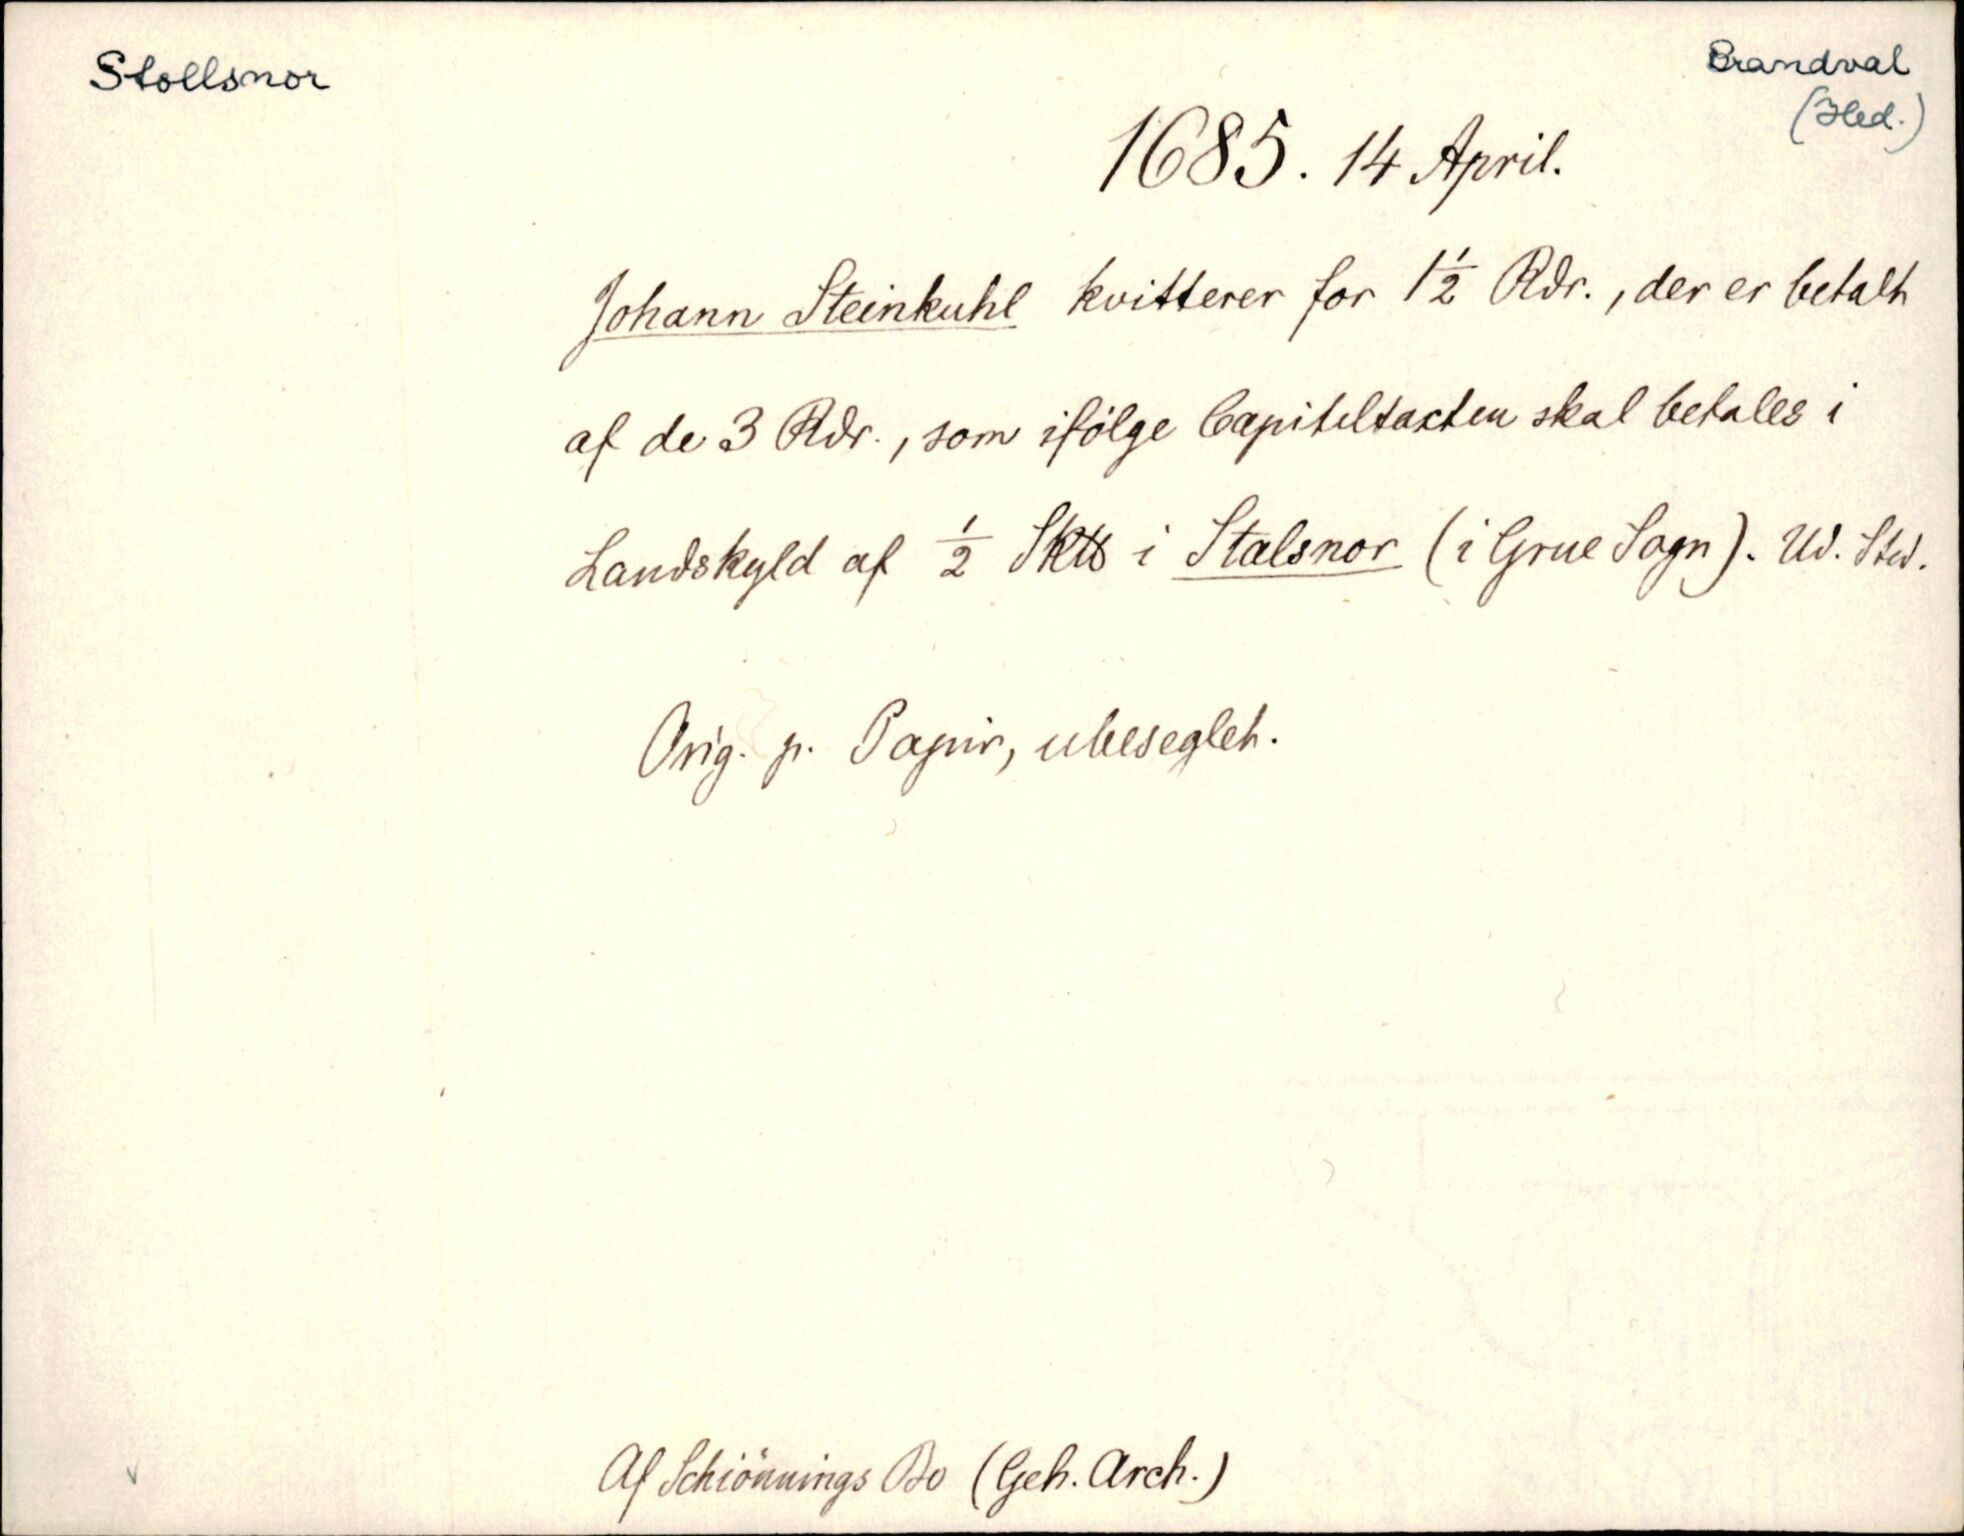 Stollsnor
Brandval
(Hed.)
1685. 14 April.
Johann Steinkuhl kvitterer for 1½ Rdr., der er betalt
af de 3 Rdr., som ifølge Capiteltaxten skal betales i
Landskyld af ½ Sk℔ i Stalsnor (i Grue Sogn). Ud. Sted.
Orig. p. Papir, ubeseglet.
Af Schiönnings Bo (Geh. Arch.)